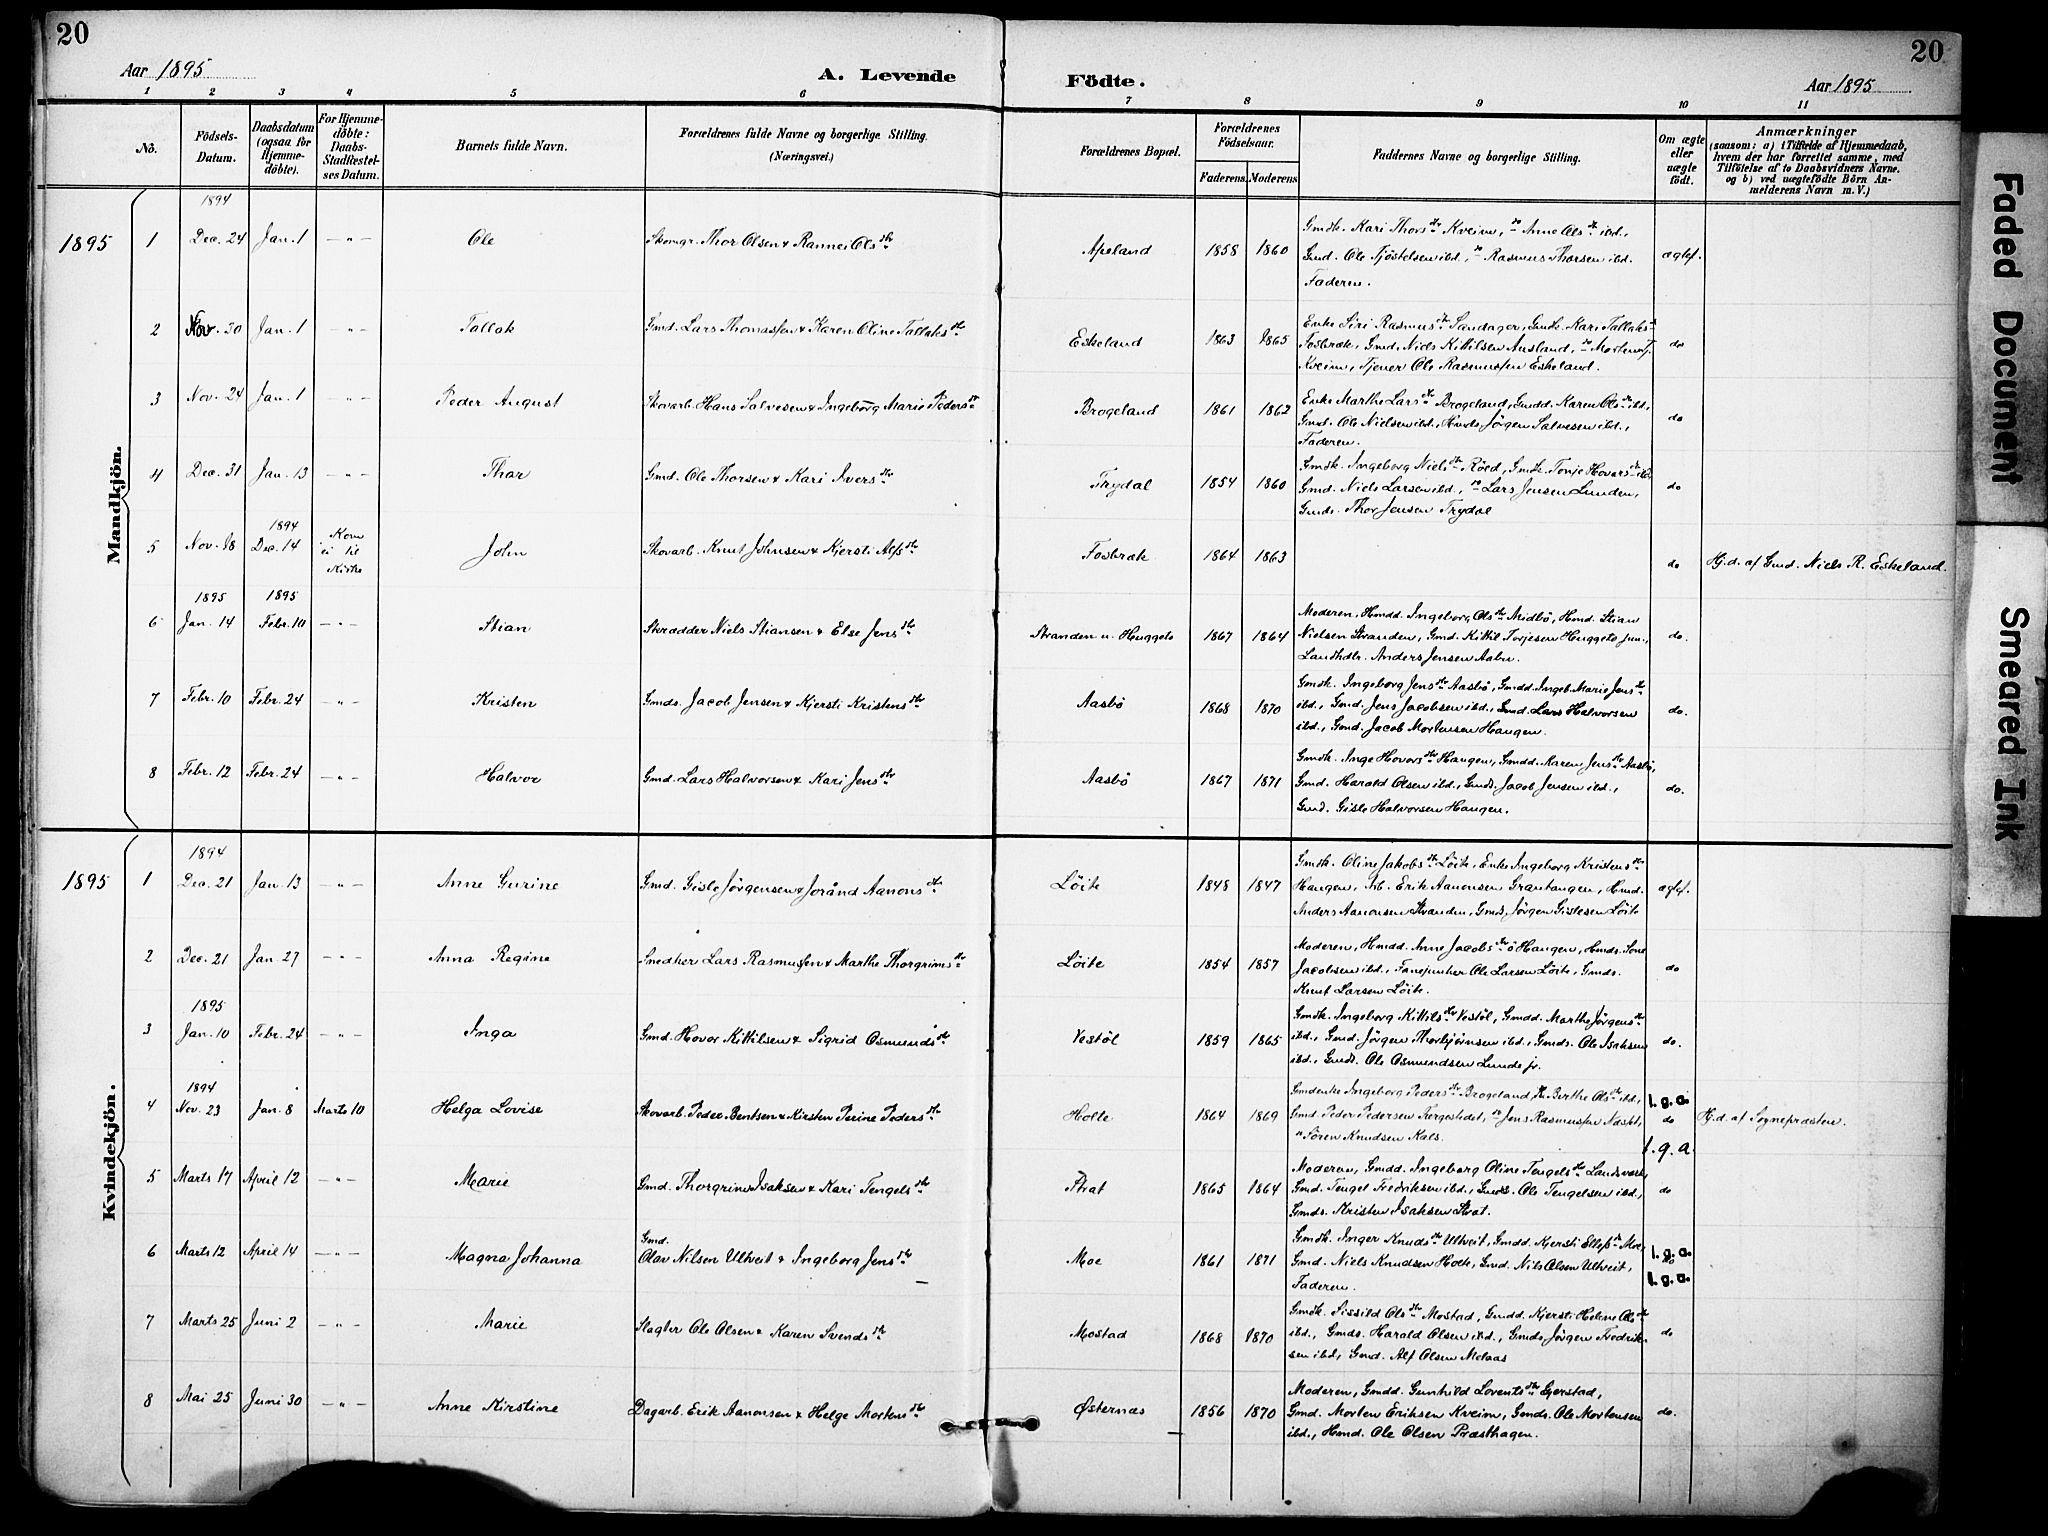 20
20
Aar 1895
A. Levende Födte.
Aar 1895
1 2 3 4 5 6 7 8 9 10 11
No.
Födsels-Datum.
Daabsdatum (ogsaa for Hjemmedöbte).
For Hjemmedöbte: Daabs-Stadfæstelses Datum.
Barnets fulde Navn.
Forældrenes fulde Navne og borgerlige Stilling. (Næringsvei.)
Forældrenes Bopæl.
Forældrenes Födselsaar.
Faderens. Moderens.
Faddernes Navne og borgerlige Stilling.
Om ægte eller uægte födt.
Anmærkninger
(saasom: a) i Tilfælde af Hjemmedaab,
hvem der har forrettet samme, med
Tilföielse af to Daabsvidners Navne.
og b) ved uægtefödte Börn An-
melderens Navn m. V.)
Mandkjön.
1894
1895 1 Dec. 24 Jan. 1 —"— Ole Skomgr. Thor Olsen & Rannei Olsdtr Apeland 1858 1860 Gmdk. Kari Thorsdtr Kveim, do Anne Olsdtr ibd.,
Gmd. Ole Tjöstelsen ibd., do Rasmus Thorsen ibd. ægtef.
Faderen.
2 Nov. 30 Jan. 1 —"— Tallak Gmd. Lars Thomassen & Karen Oline Tallaksdtr Eskeland 1863 1865 Enke Siri Rasmusdtr Sandager, Gmdk. Kari Tallaksd
Fosbræk, Gmd. Niels Kittilsen Ausland, do Morten T. do
Kveim, Tjener Ole Rasmussen Eskeland.
3 Nov. 24 Jan. 1 —"— Peder August Skovarb. Hans Salvesen & Ingeborg Marie Pedersdtr Brogeland 1861 1862 Enke Marthe Larsdtr Brogeland, Gmdd. Karen Olsdtr ibd.,
Gmd. Ole Nielsen ibd., Hmds. Jörgen Salvesen ibd., do
Faderen.
4 Dec. 31 Jan. 13 —"— Thor Gmd. Ole Thorsen & Kari Iversdtr Trydal 1854 1860 Gmdk. Ingeborg Nielsdtr Röed, Gmdk. Tonje Hovorsdtr ibd.
Gmd. Niels Larsen ibd., do Lars Jensen Lunden, do
Gmds. Thor Jensen Trydal
1894
5 Nov. 18 Dec. 14 Kom ei til Kirke John Skovarb. Knut Johnsen & Kjersti Alfsdtr Fosbræk 1864 1863 do Hj.d. af Gmd. Niels R. Eskeland.
1895 1895
6 Jan. 14 Febr. 10 —"— Stian Skrædder Niels Stiansen & Else Jensdtr Stranden u. Heuggelo 1867 1864 Moderen, Hmdd. Ingeborg Olsdtr Midbö, Hmd. Stian
Nielsen Stranden, Gmd. Kittil Torjesen Heuggelo jun., do.
Landhdlr. Anders Jensen Aabu.
7 Febr. 10 Febr. 24 —"— Kristen Gmds. Jacob Jensen & Kjersti Kristensdtr Aasbö 1868 1870 Gmdk. Ingeborg Jensdtr Aasbö, Gmdd. Ingeb. Marie Jensdtr
ibd., Gmd. Jens Jacobsen ibd., Gmd. Lars Halvorsen do.
ibd., Gmd. Jacob Mortensen Haugen.
8 Febr. 12 Febr. 24 —"— Halvor Gmd. Lars Halvorsen & Kari Jensdtr Aasbö 1867 1871 Gmdk. Inge Hovorsdtr Haugen, Gmdd. Karen Jensdtr Aasbö,
Gmd. Harald Olsen ibd., Gmds. Jacob Jensen ibd., do.
Gmd. Gisle Halvorsen Haugen.
Kvindekjön.
1894
1895 1 Dec. 21 Jan. 13 —"— Anne Gurine Gmd. Gisle Jörgensen & Jorånd Aanonsdtr Löite 1848 1847 Gmdk. Oline Jakobsdtr Löite, Enke Ingeborg Kristensdtr
Haugen, Arb. Erik Aanonsen Grautangen, Hmd. ægtef.
Anders Aanonsen Stranden, Gmds. Jörgen Gislesen Löite
2 Dec. 21 Jan. 27 —"— Anna Regine Snedker Lars Rasmussen & Marthe Thorgrimsdtr Löite 1854 1857 Moderen, Hmdd. Anne Jacobsdtr Haugen, Hmds. Sone
Jacobsen ibd., Fanejunker Ole Larsen Löite, Gmds. do
Knut Larsen Löite.
1895
3 Jan. 10 Febr. 24 —"— Inga Gmd. Hovor Kittilsen & Sigrid Osmundsdtr Vestöl 1859 1865 Gmdk. Ingeborg Kittilsdtr Vestöl, Gmdd. Marthe Jörgensdtr
ibd., Gmd. Jörgen Thorbjörnsen ibd., Gmds. Ole Isaksen do.
ibd., Gmds. Ole Osmundsen Lunde jr.
1894
4 Nov. 23 Jan. 8 Marts 10 Helga Lovise Skovarb. Peder Bentsen & Kirsten Perine Pedersdtr Holte 1864 1869 Gmdenke Ingeborg Pedersdtr Brogeland, Berthe Olsdtr ibd.,
Gmd. Peder Pedersen Fergestedet, do Jens Rasmussen Næset, do Hj.d. af Sognepræsten.
" Sören Knudsen Kals.
l. g. a.
l. g. a.
5 Marts 17 April 12 —"— Marie Gmd. Thorgrim Isaksen & Kari Tengelsdtr Strat 1865 1864 Moderen, Gmdd. Ingeborg Oline Tengelsdtr Landsverk,
Gmd. Tengel Fredriksen ibd., Gmds. Ole Tengelsen ibd., do
Gmds. Kristen Isaksen Strat.
6 Marts 12 April 14 —"— Magna Johanna Gmd. Olav Nilsen Ulveit & Ingeborg Jensdtr Moe 1861 1871 Gmdk. Inger Knudsdtr Ulveit, Gmdd. Kjersti Ellefsdtr Moe,
Gmd. Niels Knudsen Holte, Gmd. Nils Olsen Ulveit, do
Faderen.
l. g. a.
l. g. a.
7 Marts 25 Juni 2 —"— Marie Slagter Ole Olsen & Karen Svendsdtr Mostad 1868 1870 Gmdk. Sissild Olsdtr Mostad, Gmdd. Kjersti Helene Olsdtr
ibd., Gmds. Harald Olsen ibd., Gmds. Jörgen Fredrik- do
sen ibd., Gmd. Alf Olsen Melaas
8 Mai 25 Juni 30 —"— Anne Kirstine Dagarb. Erik Aanonsen & Helge Mortensdtr Østernæs 1856 1870 Moderen, Gmdd. Gunhild Loventsdtr Gjerstad,
Gmd. Morten Eriksen Kveim, Gmds. Ole Mortensen do.
ibd., Hmd. Ole Olsen Præsthagen.
Faded Document
Smeared Ink